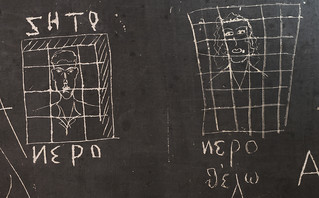 ΖΗΤΩ
ΝΕΡΟ
νερο
θέλω